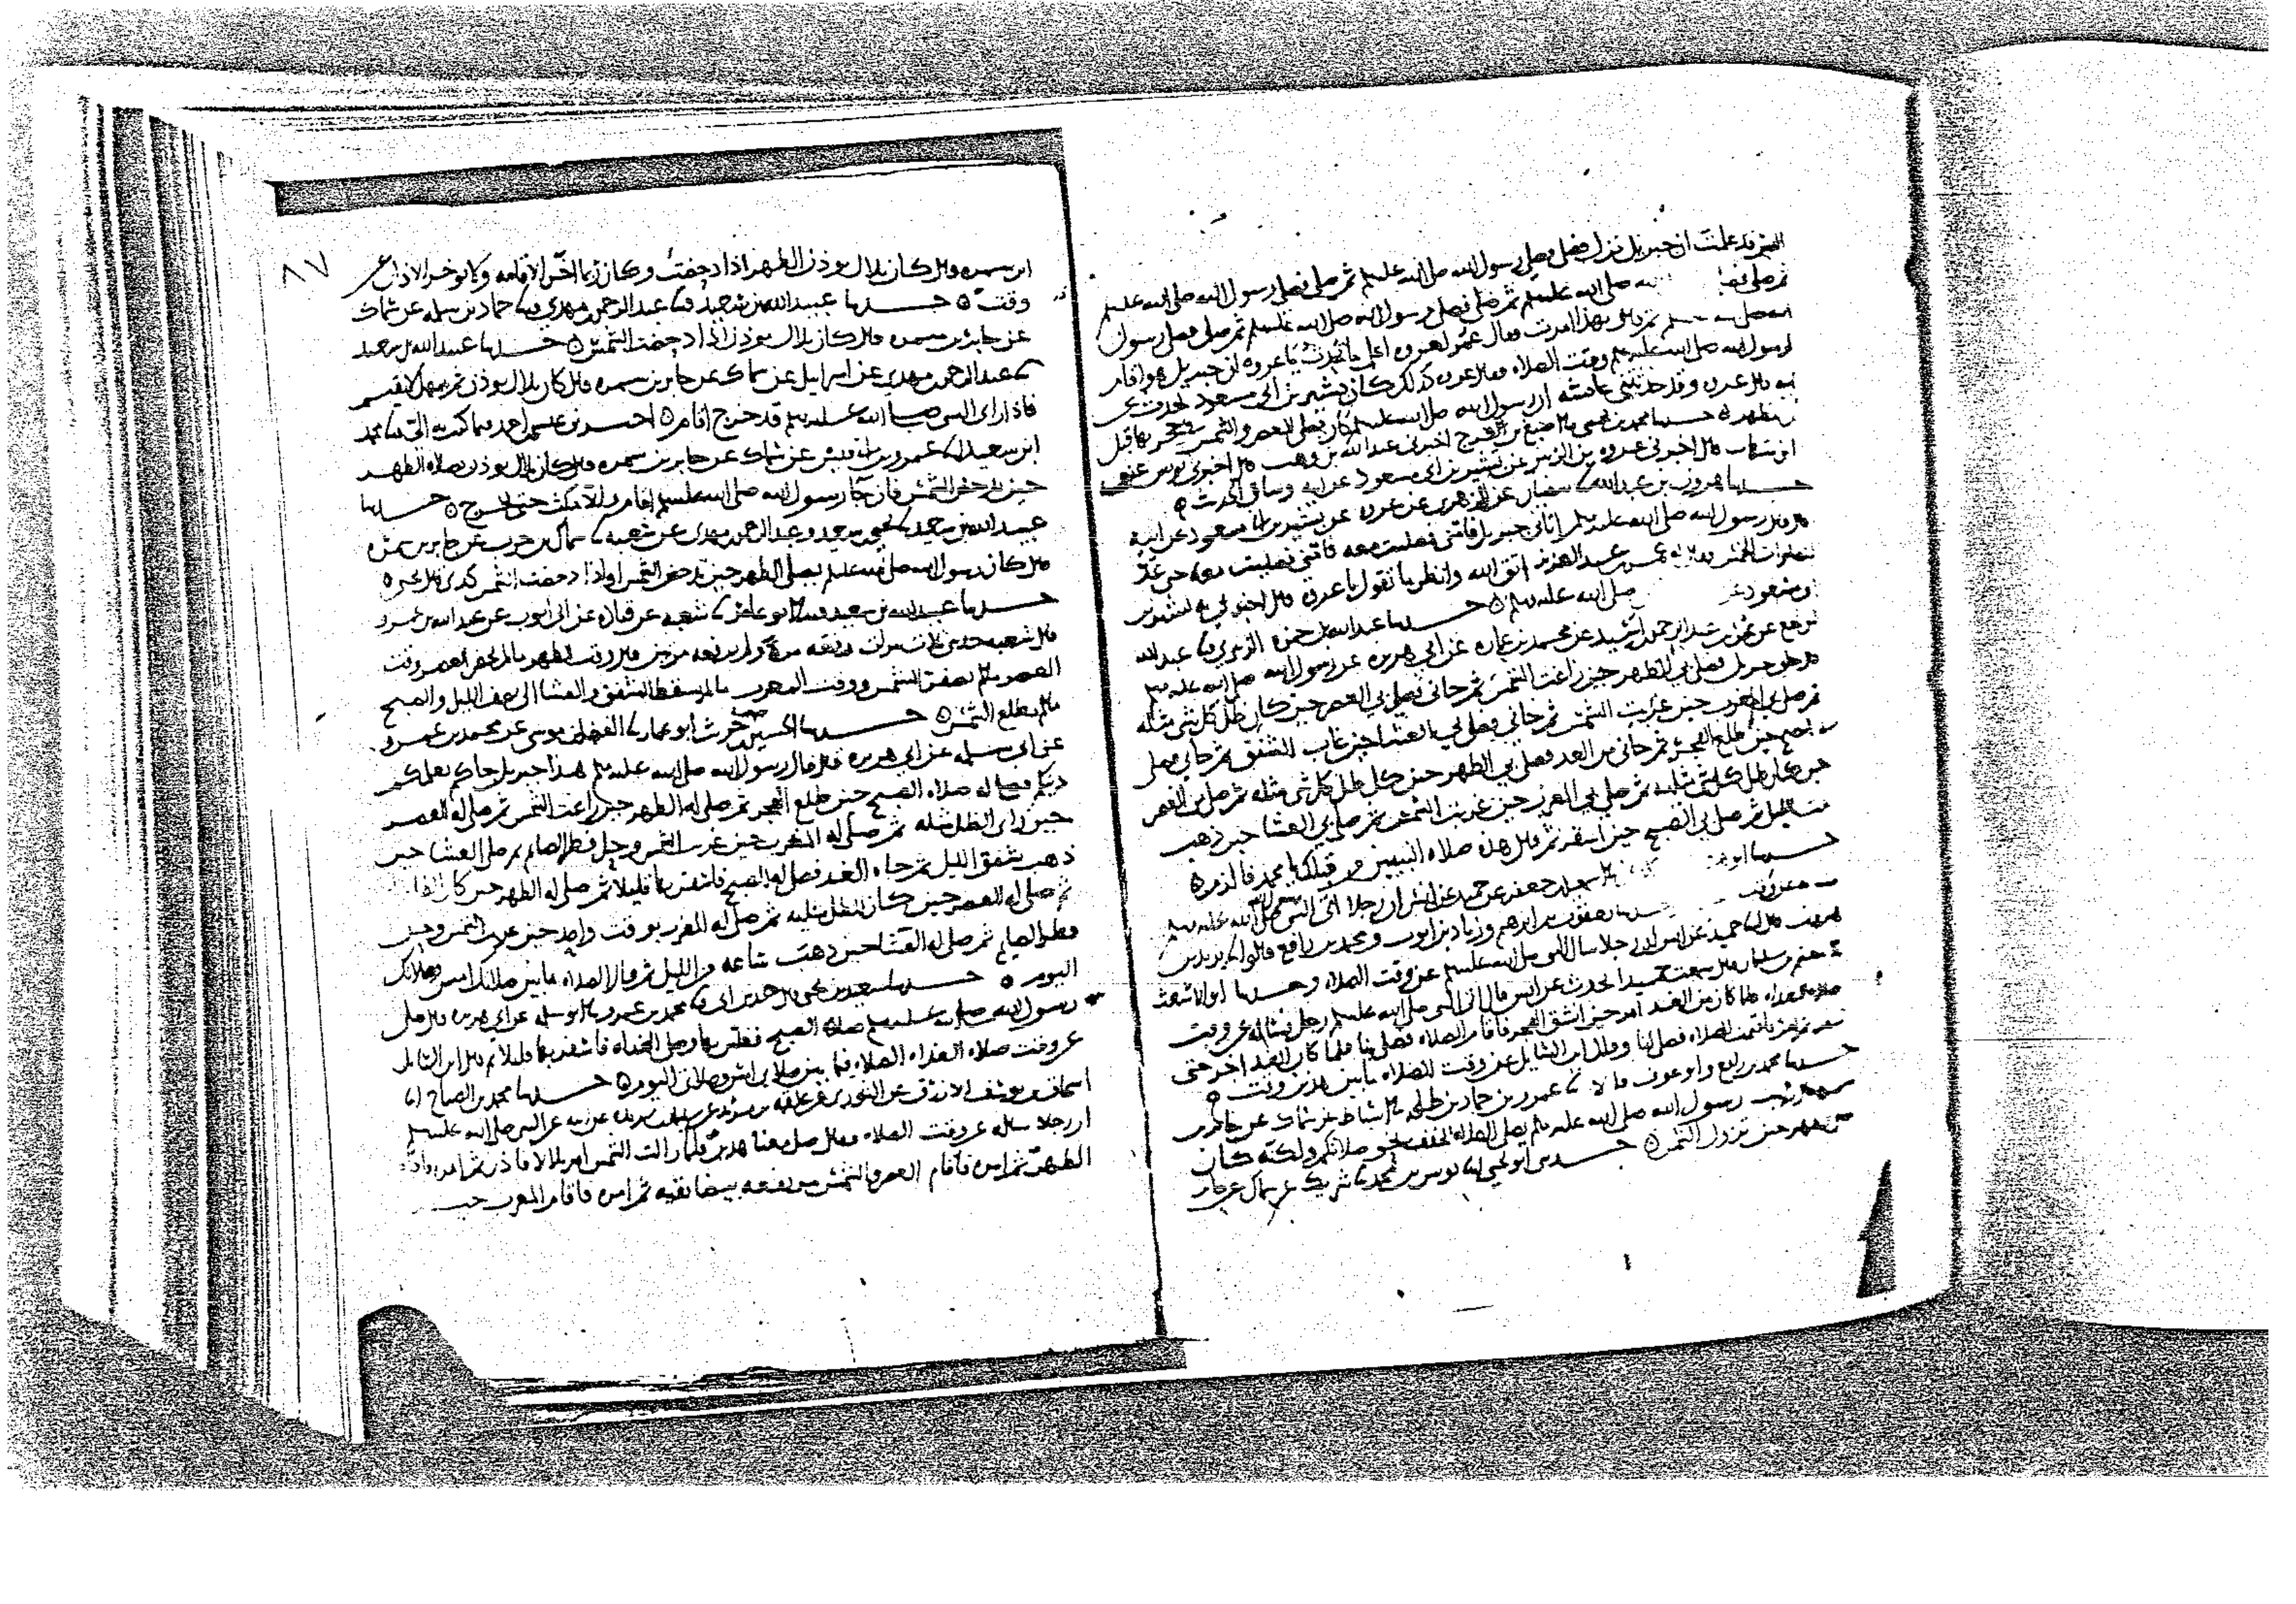 قد علمت ان جبريل نزل فصلى وصلى رسول الله صلى الله عليه وسلم ثم صلى فصلى رسول الله صلى الله عليه وسلم
ثم صلى صلى الله عليه وسلم ثم صلى فصلى رسول الله صلى الله عليه وسلم ثم صلى فصلى رسول
الله صلى وسلم ثم قال بهذا امرت فقال عمر لعروه اعلم ما تحدث يا عروه ان جبريل هو اقام
لرسول الله صلى الله عليه وسلم وقت الصلاه فقال عروه كذلك كان بشير بن ابي مسعود يحدث عن
ابيه قال عروه وقد حدثتني عائشه ان رسول الله صلى الله عليه وسلم كان يصلي العصر والشمس في حجرتها قبل
ان تظهر ه حدثنا محمد بن يحيى اصبغ بن الفرج اخبرني عبد الله بن وهب قال اخبرني يونس عن
ابن شهاب قال اخبرني عروه بن الزبير عن بشير بن ابي مسعود عن ابيه وساق الحديث ه
حدثنا هرون بن عبد الله سفيان عن الزهري عن عروه عن بشير بن ابي مسعود عن ابيه
قال قال رسول الله صلى الله عليه وسلم اتاني جبريل فامني فصليت معه فامني فصليت معه حتى عد
الصلوات الخمس فقال له عمر بن عبد العزيز اتق الله وانظر ما تقول يا عروه قال اخبرني به بشير بن
ابي مسعود عن صلى الله عليه وسلم ه حدثنا عبد الله بن حمزه الزبيري عبد الله
بن نافع عن عمر بن عبد الرحمن بن اسيد عن محمد بن عمار عن ابي هريره عن رسول الله صلى الله عليه وسلم
جبريل فصلى بي الظهر حين زاغت الشمس ثم جاني فصلى بي العصر حين كان ظل كل شي مثله
ثم صلى بي المغرب حين غربت الشمس ثم جاني فصلى بي العشا حين غاب الشفق ثم جاني فصلى
بي الصبح حين طلع الفجر ثم جاني من الغد فصلى بي الظهر حين كان ظل كل شي مثله ثم صلى بي العصر
حين كان ظل كل شي مثليه ثم صلى بي المغرب حين غربت الشمس ثم صلى بي العشا حين ذهب
الليل ثم صلى بي الصبح حين اسفر ثم قال هذه صلاه النبيين من قبلك يا محمد فالزم ه
حدثنا جعفر عن حميد عن انس ان رجلا اتى النبي صلى الله عليه وسلم
يعقوب بن ابرهيم وزياد بن ايوب ومحمد بن رافع قالوا يزيد بن
هرون قال حميد عن انس ان رجلا سال النبي صلى الله عليه وسلم عن وقت الصلاه وحدثنا ابو الاشعث
معتمر بن سليمان قال سمعت حميدا يحدث عن انس قال اتى النبي صلى الله عليه وسلم رجل فساله عن وقت
صلاه الغداه فلما كان من الغد امر حين انشق الفجر فاقام الصلاه فصلى بنا فلما كان الغد اخر حتى
اسفر ثم امر فاقيمت الصلاه فصلى لنا وقال اين السائل عن وقت الصلاه ما بين هذين وقت ه
حدثنا محمد بن رافع وابو عوف قالا عمرو بن حماد بن طلحه اسباط عن سماك عن جابر بن
سمره رسول الله صلى الله عليه وسلم يصلي الصلاه نحو صلاتكم ولكنه كان
حين تزول الشمس ه حدثني ابو يحيى يونس بن محمد شريك عن سماك عن جابر
٨٧
ابن سمره قال كان بلال يوذن الظهر اذا دحضت وكان ربما اخر الاقامه وكان لا يوخر الاذان عن
وقت ه حدثنا عبيد الله بن سعيد عبد الرحمن بن مهدي حماد بن سلمه عن سماك
عن جابر بن سمره قال كان بلال يوذن اذا دحضت الشمس ه حدثنا عبيد الله بن سعيد
عبد الرحمن بن مهدي عن اسرايل عن سماك عن جابر بن سمره قال كان بلال يوذن ثم يمهل لا يقيم
فاذا راى النبي صلى الله عليه وسلم قد خرج اقام ه فيما كتب به الي محمد
ابن سعيد عمرو بن ابي قيس عن سماك عن جابر بن سمره قال كان بلال يوذن بصلاه الظهر
حين تدحض الشمس فان جا رسول الله صلى الله عليه وسلم اقام والا مكث حتى يخرج ه حدثنا
عبيد الله بن سعيد يحيى بن سعيد وعبد الرحمن بن مهدي عن شعبه سماك بن حرب عن جابر بن سمره
قال كان رسول الله صلى الله عليه وسلم يصلي الظهر حين تدحض الشمس او اذا دحضت الشمس ه
حدثنا عبيد الله بن سعيد ابو عامر شعبه عن قتاده عن ابي ايوب عن عبد الله بن عمرو
قال شعبه حدثني ثلاث مرات رفعه مره ولم يرفعه مرتين قال وقت الظهر ما لم يحضر العصر ووقت
العصر ما لم تصفر الشمس ووقت المغرب ما لم يسقط الشفق والعشا الى نصف الليل والصبح
ما لم تطلع الشمس ه حدثنا الحسين بن حريث ابو عمار الفضل بن موسى عن محمد بن عمرو
عن ابي سلمه عن ابي هريره قال قال رسول الله صلى الله عليه وسلم هذا جبريل جاكم يعلمكم
دينكم فصلى له صلاه الصبح حين طلع الفجر ثم صلى له الظهر حين زاغت الشمس ثم صلى له العصر
حين راى الظل مثله ثم صلى له المغرب حين غربت الشمس وحل فطر الصايم ثم صلى العشا حين
ذهب شفق الليل ثم جاه الغد فصلى له الصبح فاسفر بها قليلا ثم صلى له الظهر حين كان الظل
ثم صلى له العصر حين كان الظل مثليه ثم صلى له المغرب بوقت واحد حين غربت الشمس وحل
فطر الصايم ثم صلى له العشا حين ذهب ساعه من الليل ثم قال الصلاه ما بين صلاتك امس وصلاتك
اليوم ه حدثنا سعيد بن يحيى قال حدثني ابي محمد بن عمرو ابو سلمه عن ابي هريره قال صلى
رسول الله صلى الله عليه وسلم صلاه الصبح فغلس بها وصلى الغداه فاسفر بها قليلا ثم قال اين السائل
عن وقت صلاه الغداه الصلاه فيما بين صلاتي امس وصلاتي اليوم ه حدثنا محمد بن الصباح
اسحاق بن يوسف الازرق عن الثوري عن علقمه بن مرثد عن سليمان بن بريده عن ابيه عن النبي صلى الله عليه وسلم
ان رجلا ساله عن وقت الصلاه فقال صل معنا هذين فلما زالت الشمس امر بلالا فاذن ثم امره
الظهر ثم امره فاقام العصر والشمس مرتفعه بيضا نقيه ثم امره فاقام المغرب حين